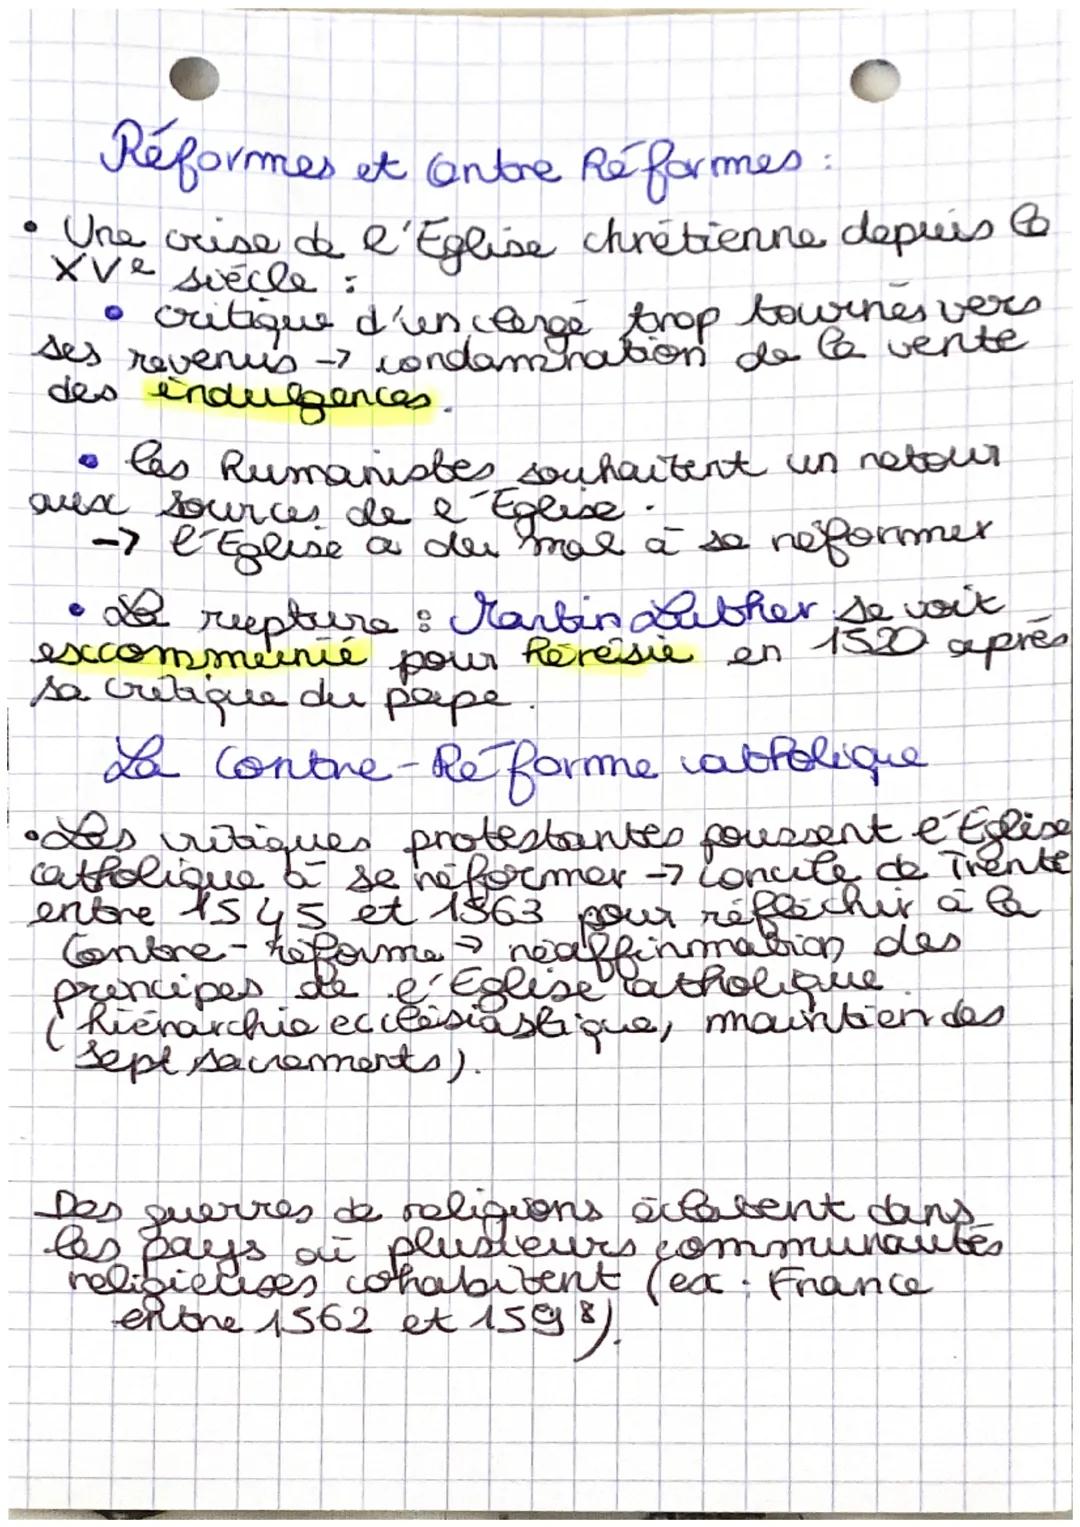 Réformes et Contre Réformes :
• Une crise de l'Eglise chrétienne depuis le
XVe siècle :
• critique d'un clergé trop tournés vers
ses revenus -> condamnation de la vente
des indulgences.
• les humanistes souhaitent un retour
aux sources de l'Eglise.
-> l'Eglise a du mal à se réformer
• La rupture : Martin Luther se voit
excommunié pour hérésie en 1520 après
sa critique du pape.
La Contre-Réforme catholique
• Les critiques protestantes poussent l'Eglise
catholique à se réformer -> concile de Trente
entre 1545 et 1563 pour réfléchir à la
Contre-réforme -> réaffirmation des
principes de l'Eglise catholique.
(hiérarchie ecclésiastique, maintien des
sept sacrements).
Des guerres de religions éclatent dans
les pays où plusieurs communautés
religieuses cohabitent (ex : France
entre 1562 et 1598).